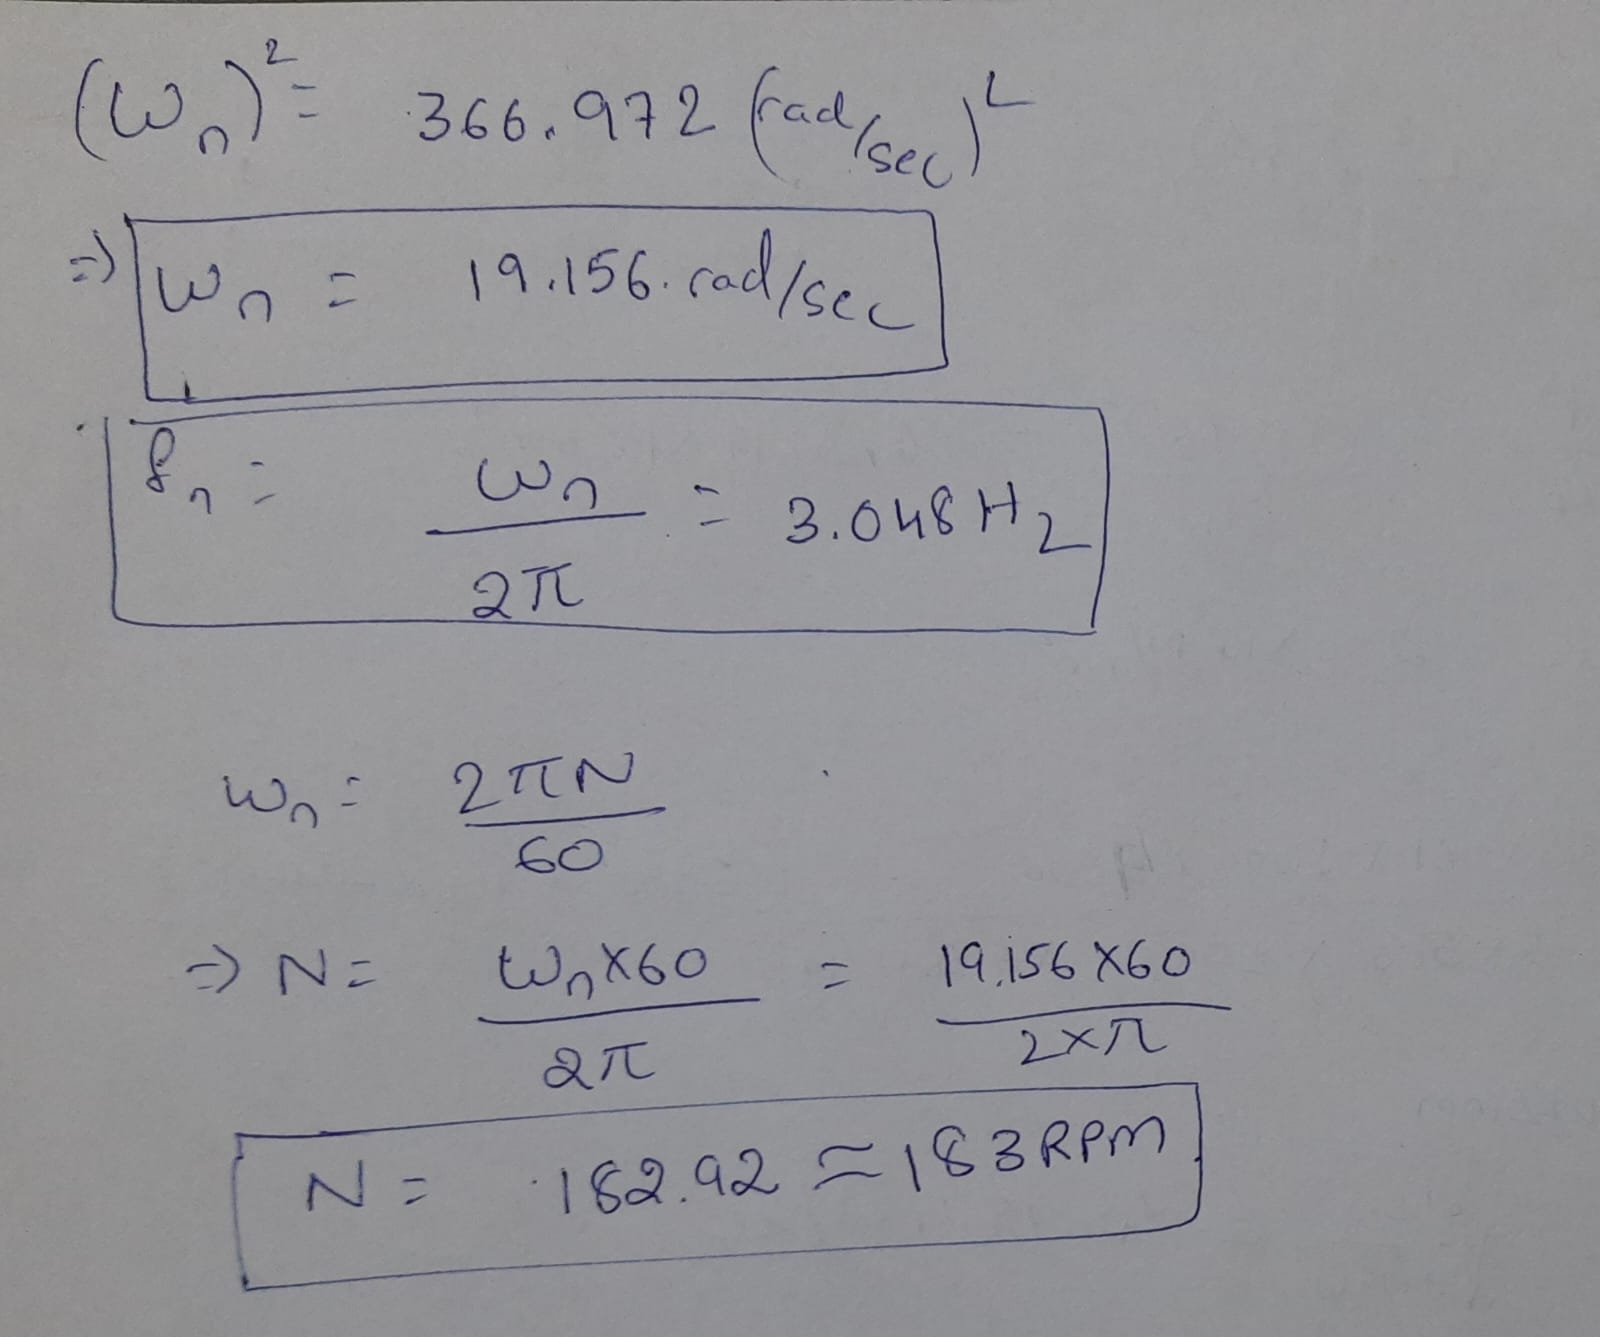 (ωn)² = 366.972 (rad/sec)²
⇒ ωn = 19.156. rad/sec
fn = ωn/2π = 3.048 Hz
ωn = 2πN/60
⇒ N = ωn×60/2π = 19.156×60/2×π
N = 182.92 ≃ 183 RPM